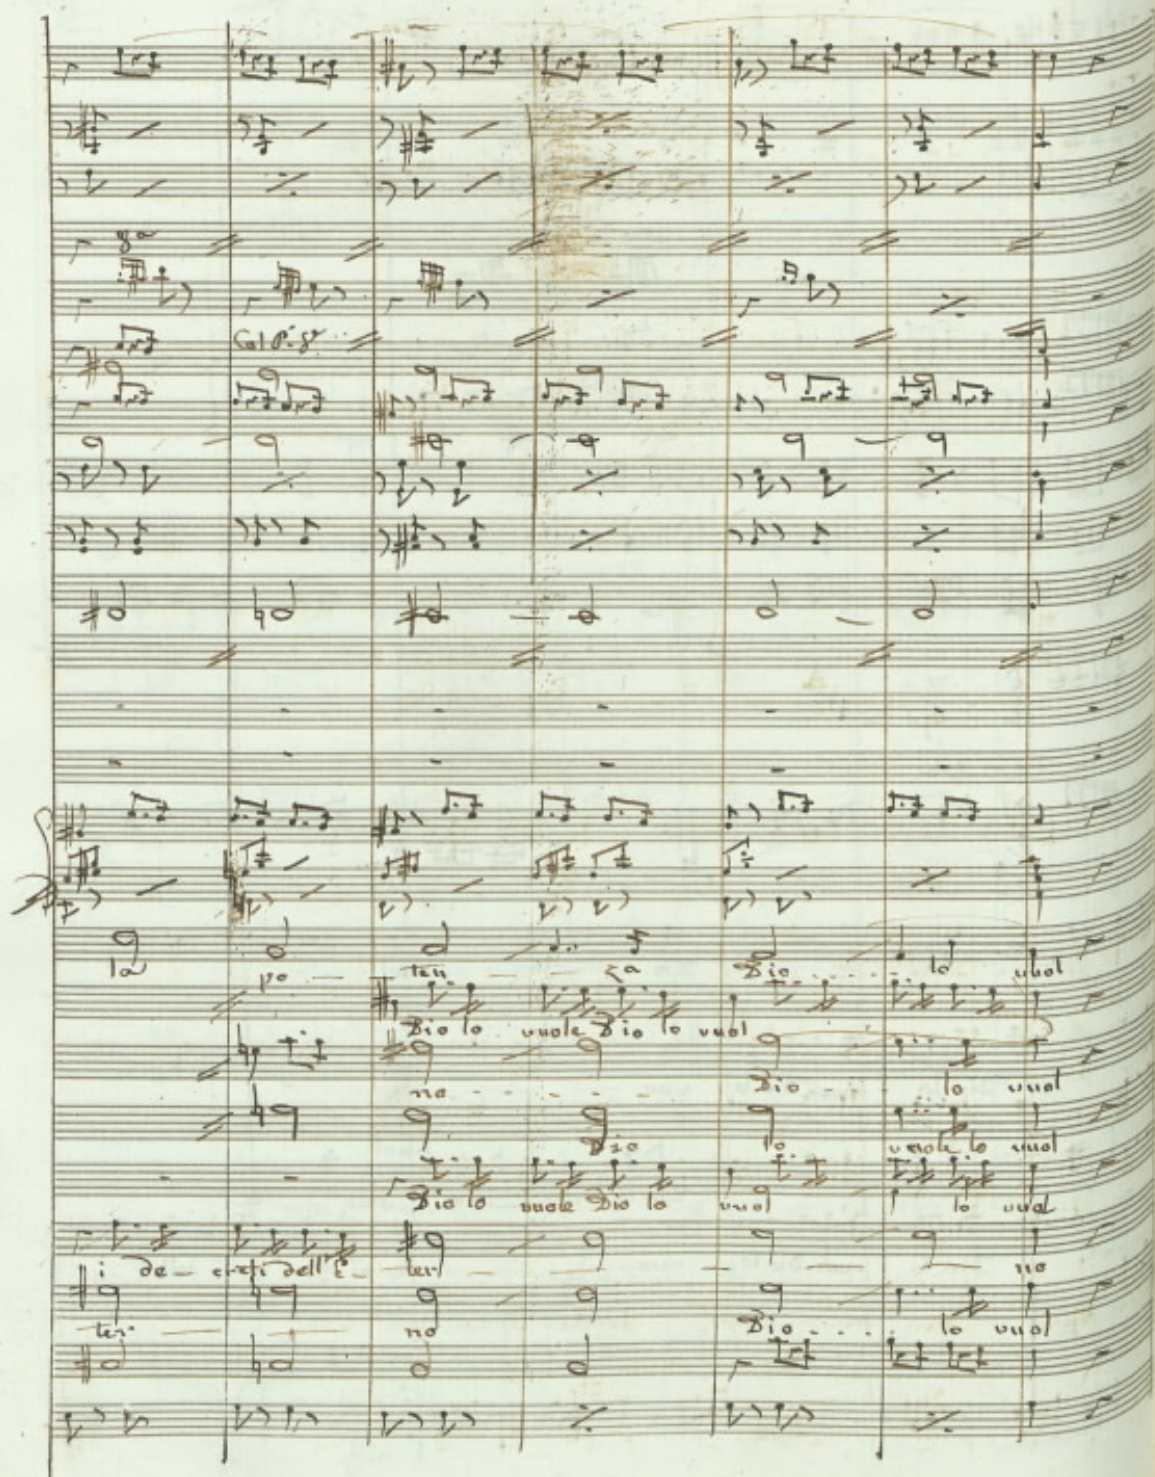 8a
Col P.º 8ª
la po - ten - za Dio lo vuol
Dio lo vuole Dio lo vuol
no Dio lo vuol
Dio lo vuole lo vuol
Dio lo vuole Dio lo vuol lo vuol
i de - creti dell'E - ter no
ter no Dio lo vuol